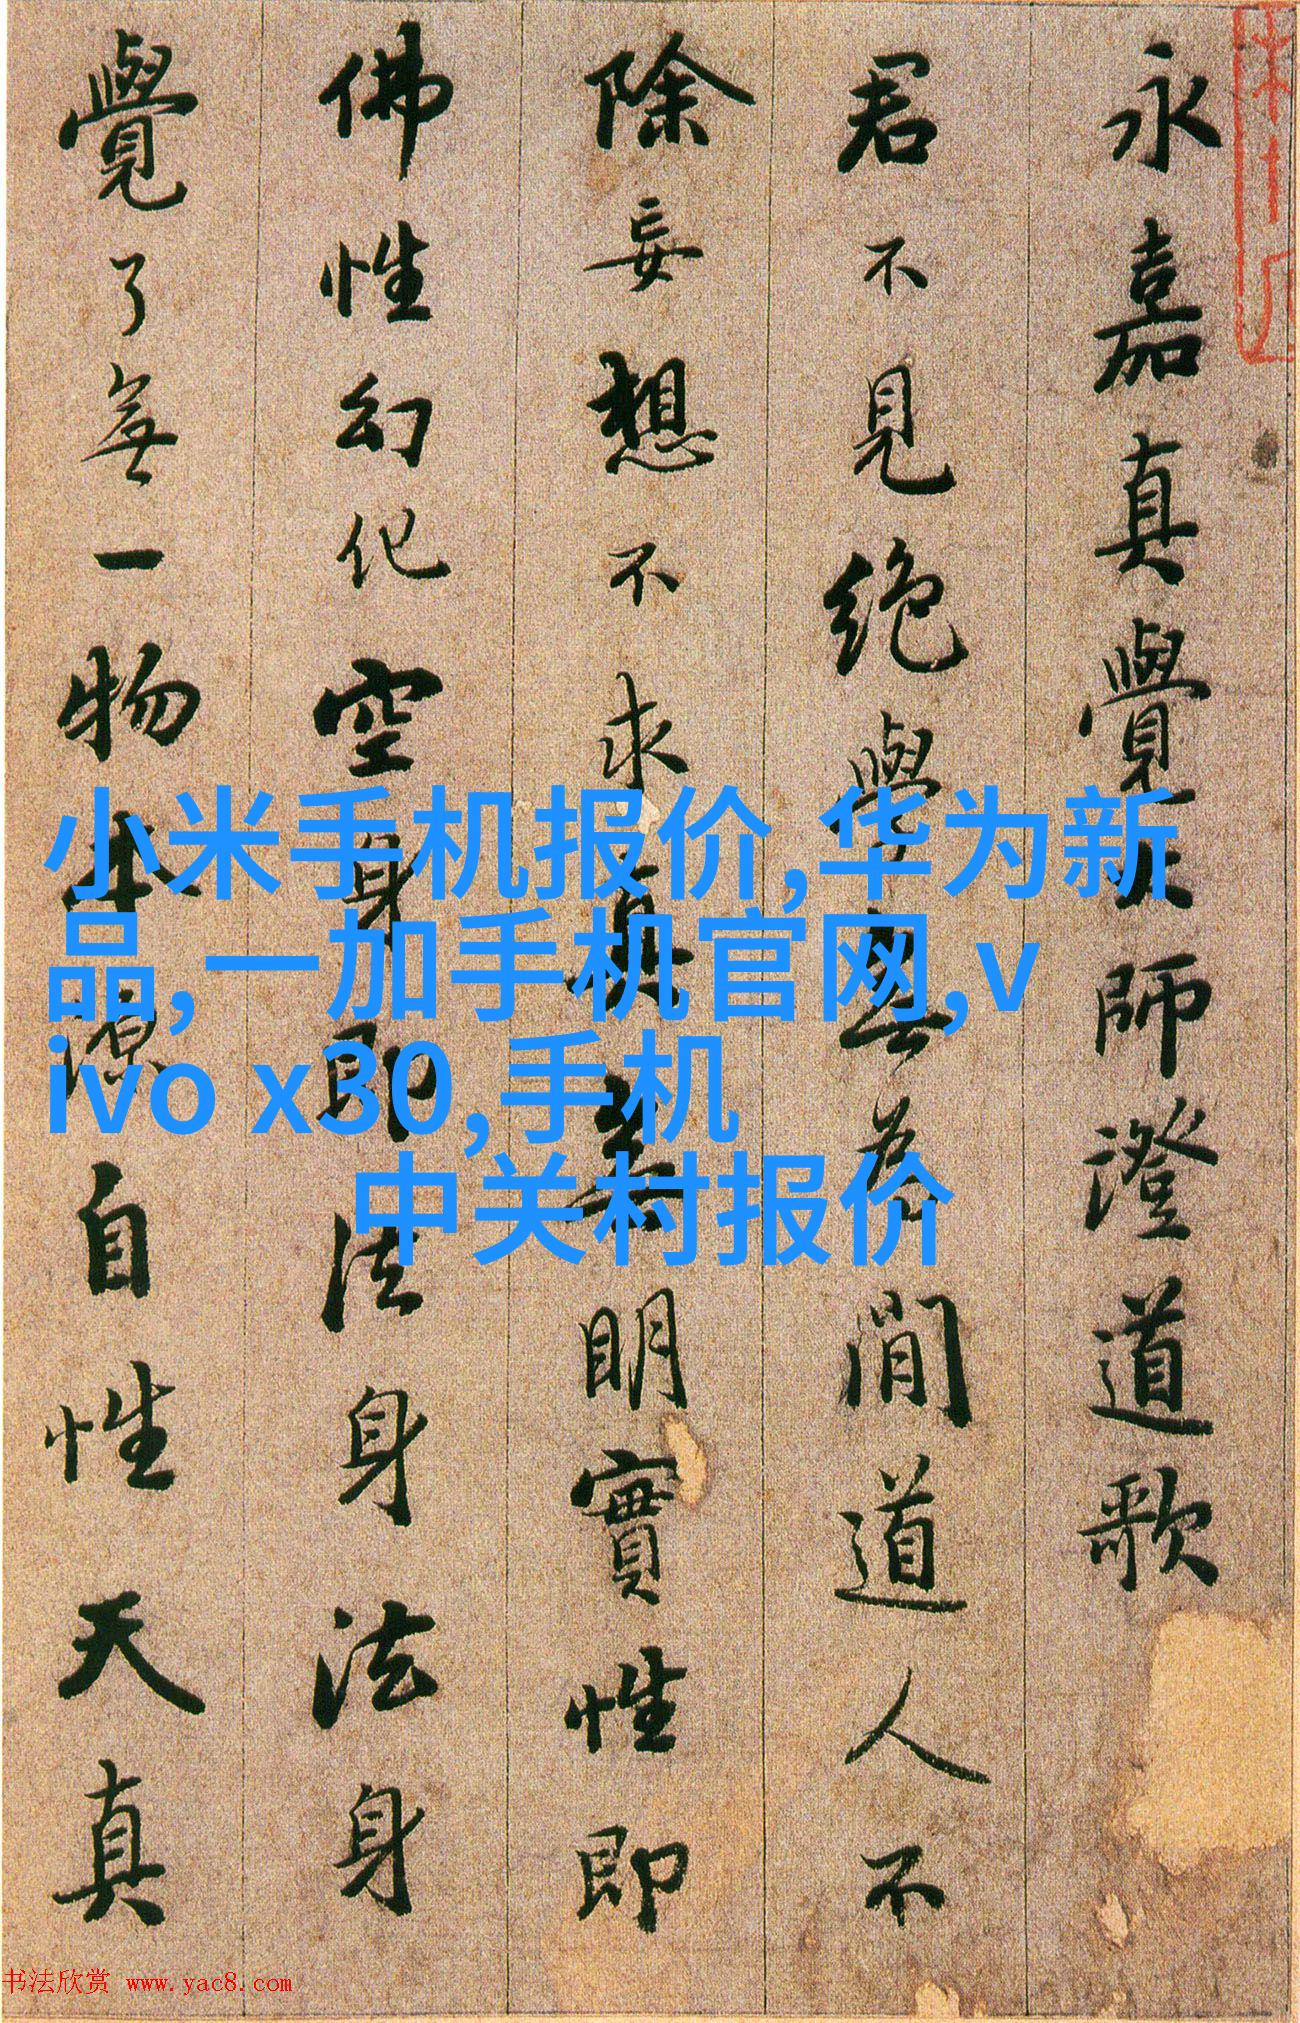 永嘉真覺大師澄道歌
君不見絶學無為閒道人不
除妄想不求真無明實性即
佛性幻化空身即法身法身
覺了無一物本源自性天真
小米手机报价,华为新
品,一加手机官网,v
ivo x30,手机
中关村报价
书法欣赏 www.yac8.com